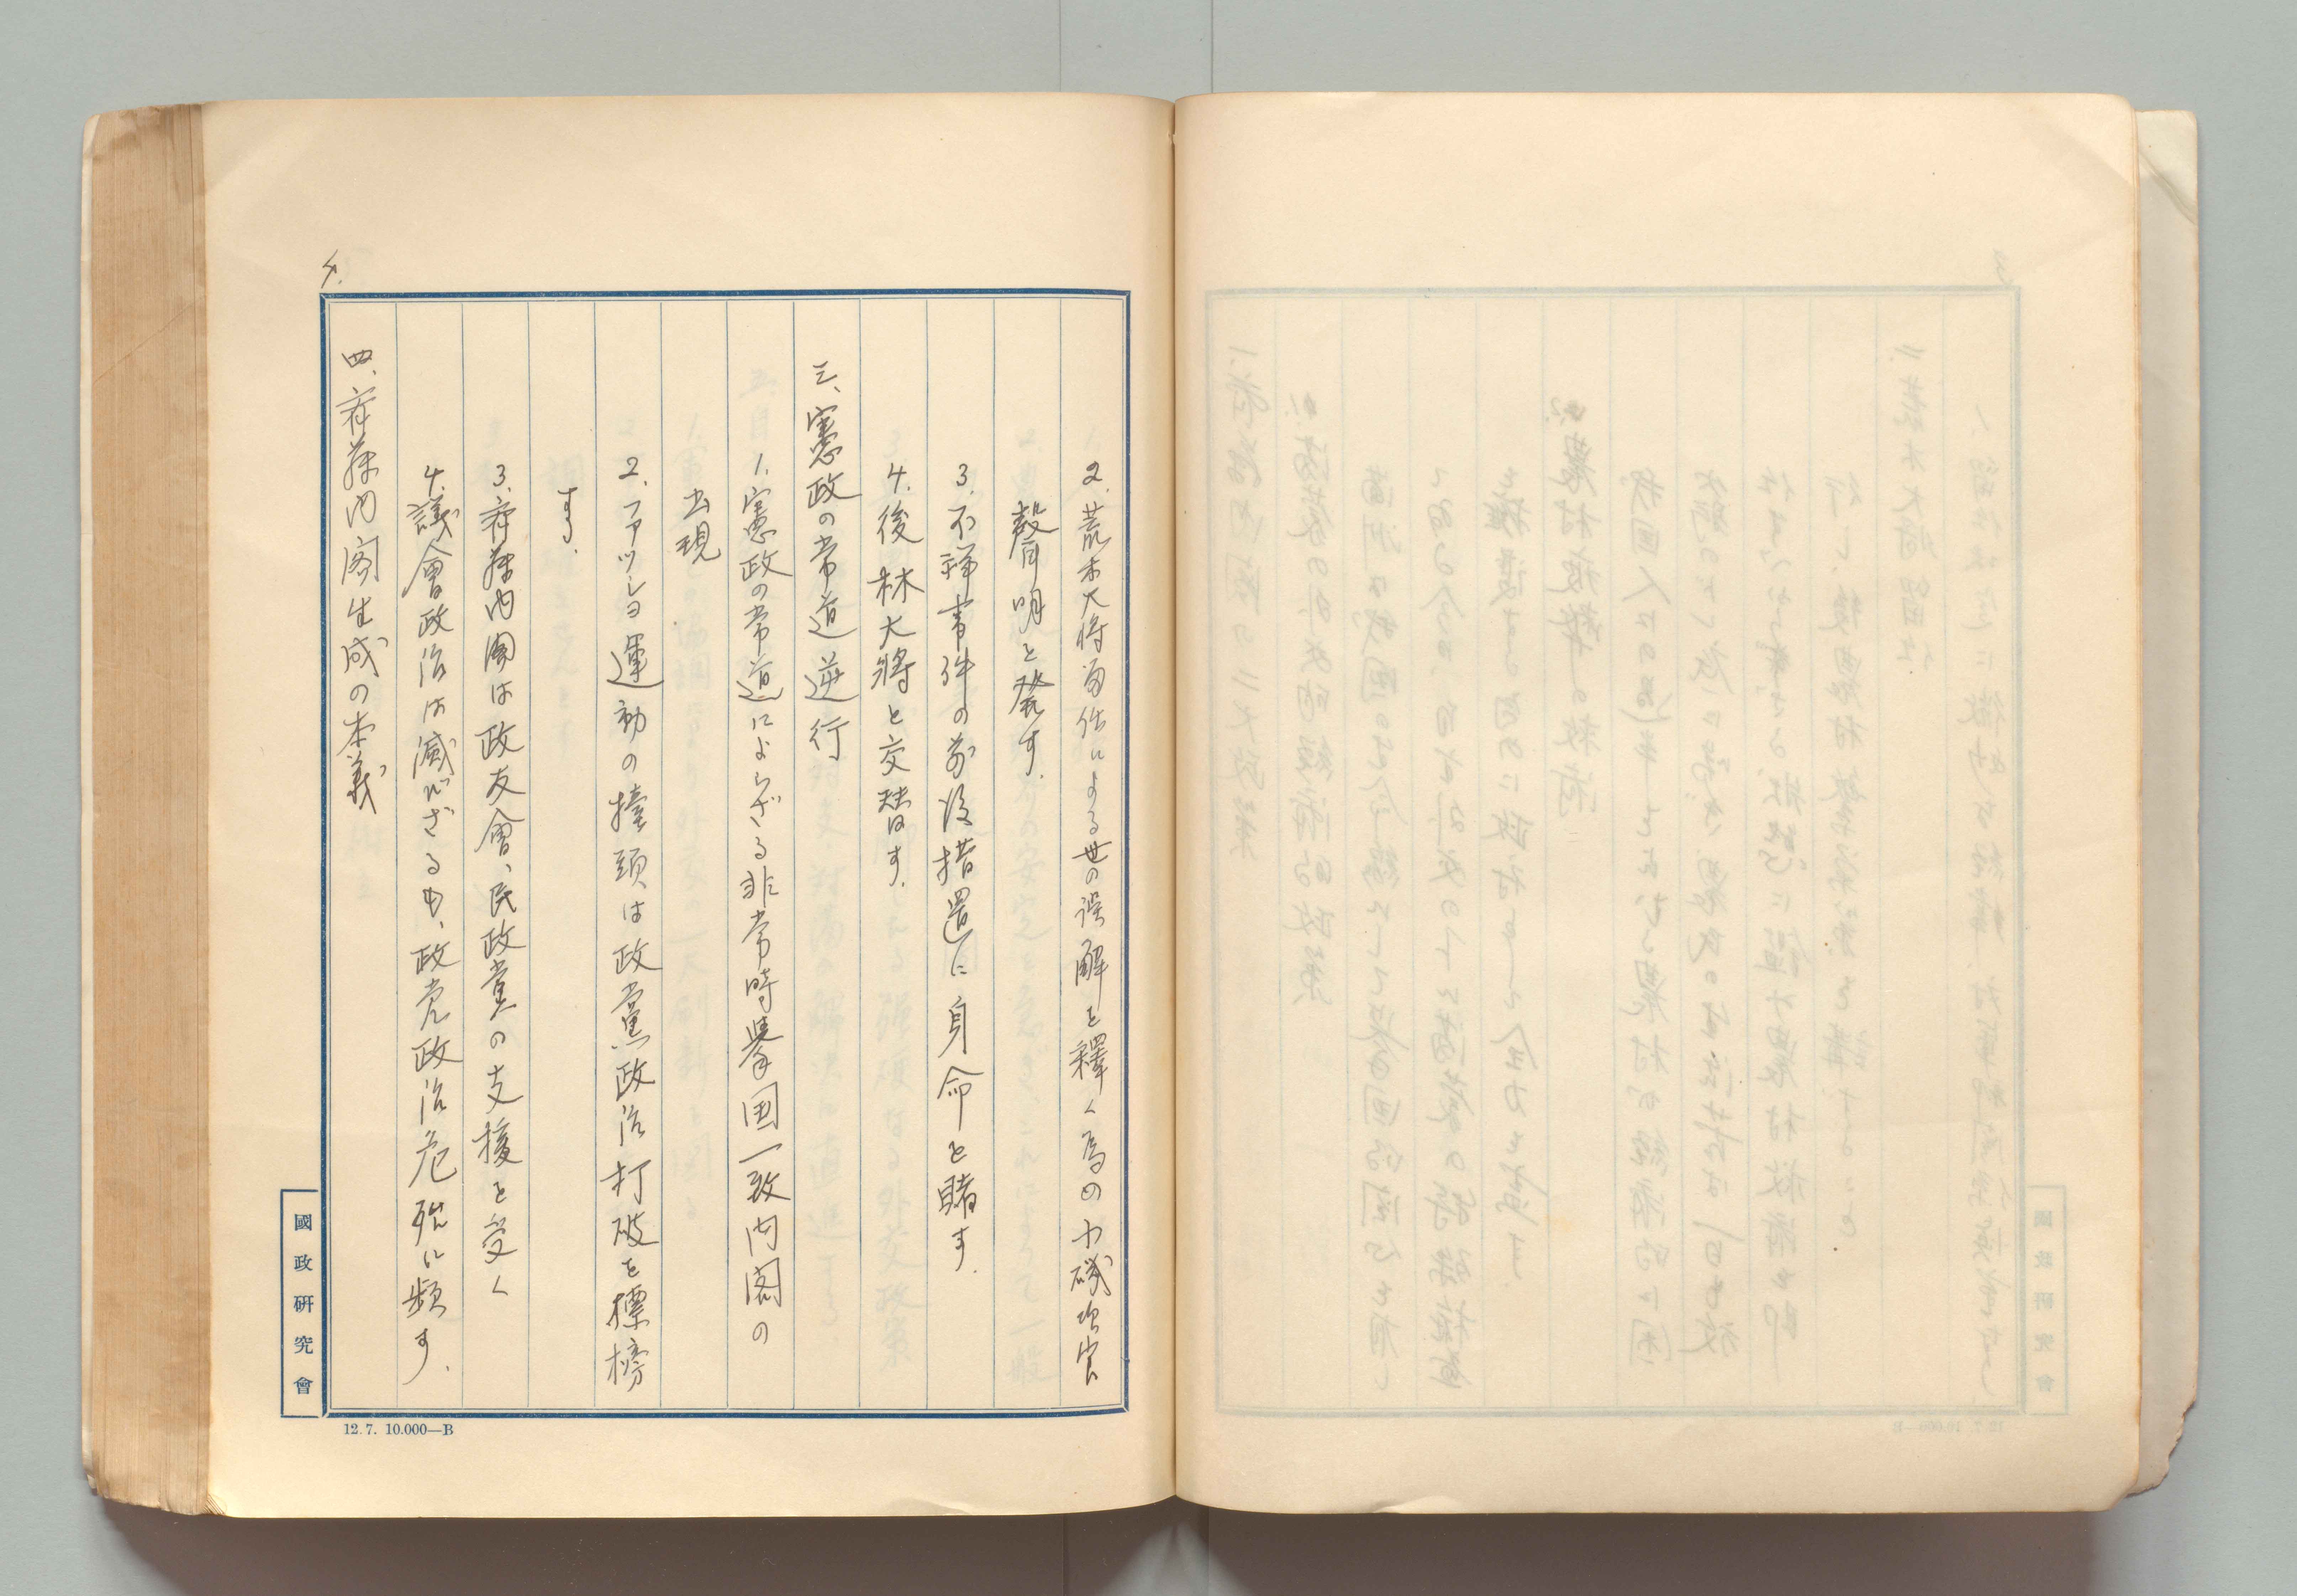 4.
2. 荒木大将留任による世の誤解を釋く為め小磯次官
聲明を発す.
3. 不祥事件の前後措置に身命を賭す.
4. 後林大將と交替す.
三、憲政の常道逆行
1. 憲政の常道によらざる非常時擧国一致内閣の
出現
2. ファツショ運動の擡頭は政黨政治打破を標榜
す.
3. 斉藤内閣は政友會、民政党の支援を受く
4. 議會政治は滅びざるも、政党政治危殆に瀕す.
四、斉藤内閣生成の本義
國政研究會
12.7. 10.000—B